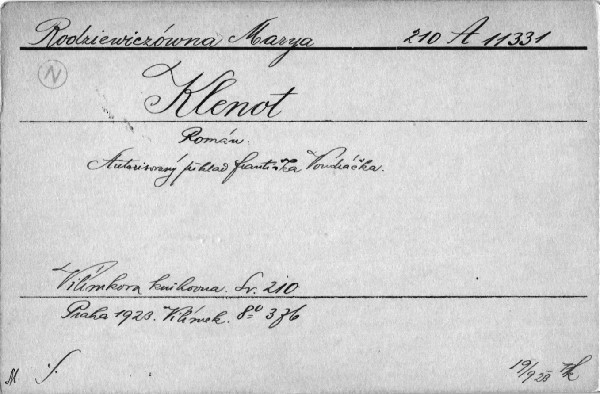 Rodziewiczówna Marya 210 A 11331
N
Klenot
Román.
Autorisovaný překlad Františka Vondráčka.
Vilímkova knihovna. Sv. 210
Praha 1923. Vilímek. 8º 376
M S. 19/9 28